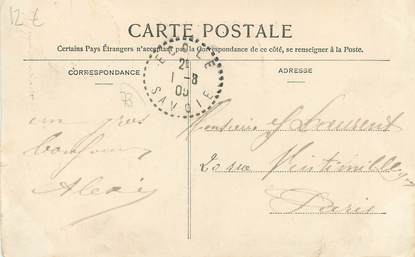 12 €
CARTE POSTALE
Certains Pays Étrangers n'acceptant pas la Correspondance de ce côté, se renseigner à la Poste.
CORRESPONDANCE
ADRESSE
ECOLE
1 - 8
SAVOIE
un gros
bonjour
Alexis
Monsieur Laurent
20 rue Vintimille
Paris